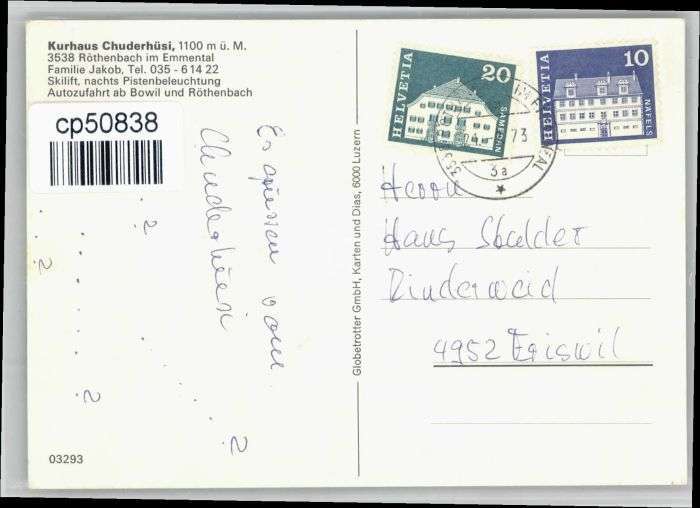 Kurhaus Chuderhüsi, 1100 m ü. M.
3538 Röthenbach im Emmental
Familie Jakob, Tel. 035 - 6 14 22
Skilift, nachts Pistenbeleuchtung
Autozufahrt ab Bowil und Röthenbach
cp50838
Es grüssen vom
Chuderhüsi
. . . . ?
. . . . . ?
. . . . . ?
. . . . . ?
03293
Globetrotter GmbH, Karten und Dias, 6000 Luzern
HELVETIA
20
SAMEDAN
HELVETIA
10
NÄFELS
73
3a
Herrn
Hans Stalder
Rinderweid
4952 Eriswil